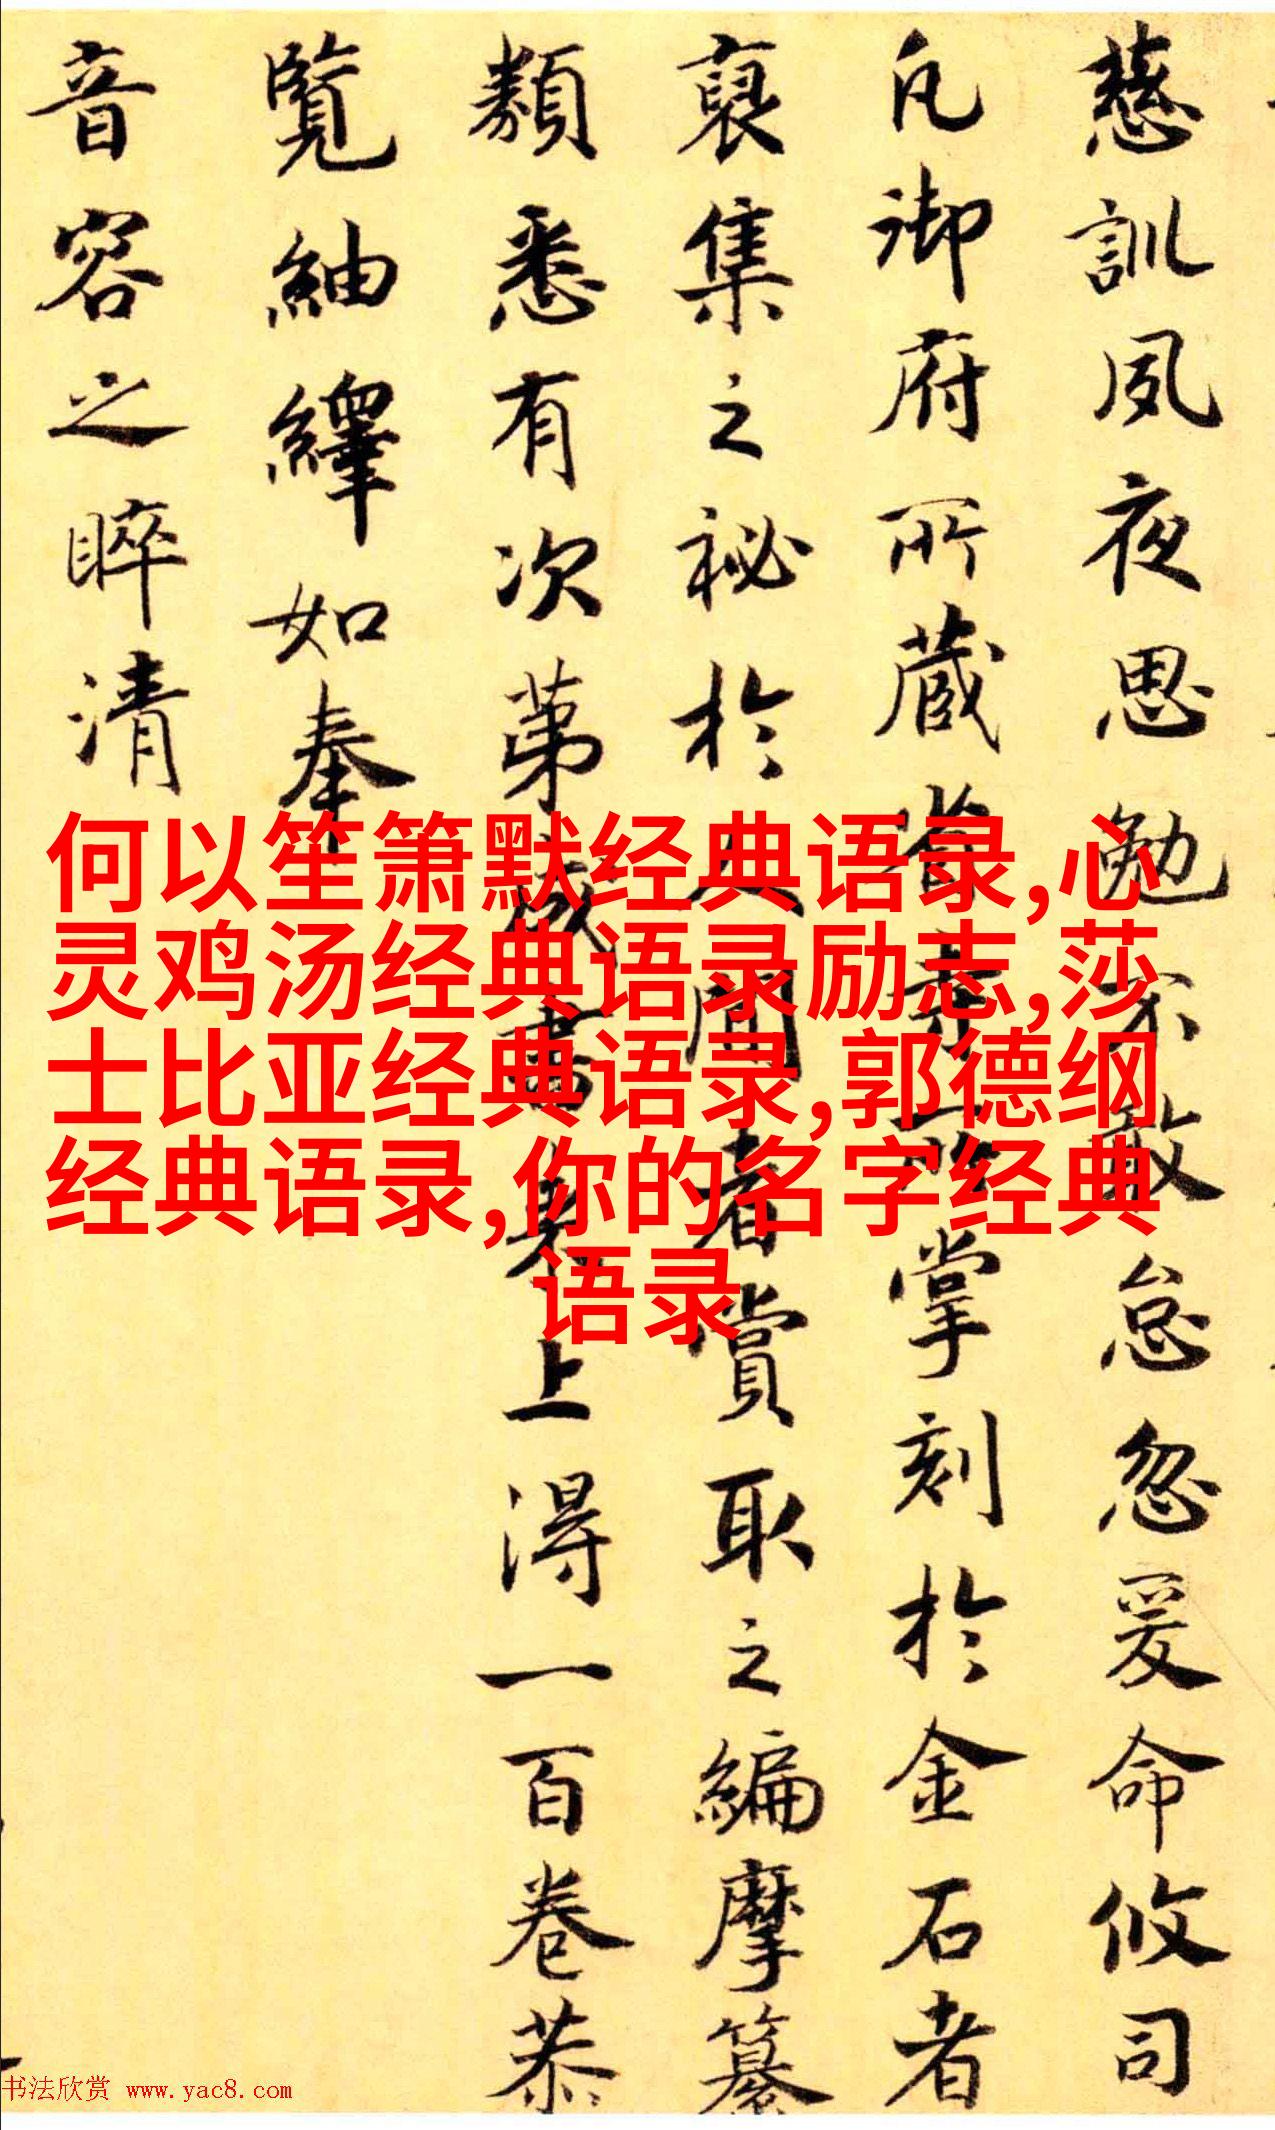 慈訓夙夜思勉不敢怠忽爰命攸司
凡御府所藏掌刻於金石者
裒集之祕於人間者賞取之編摩纂
類悉有次第成書上得一百卷恭
覽紬繹如奉
音容之睟清
何以笙箫默经典语录,心
灵鸡汤经典语录励志,莎
士比亚经典语录,郭德纲
经典语录,你的名字经典
语录
书法欣赏 www.yac8.com